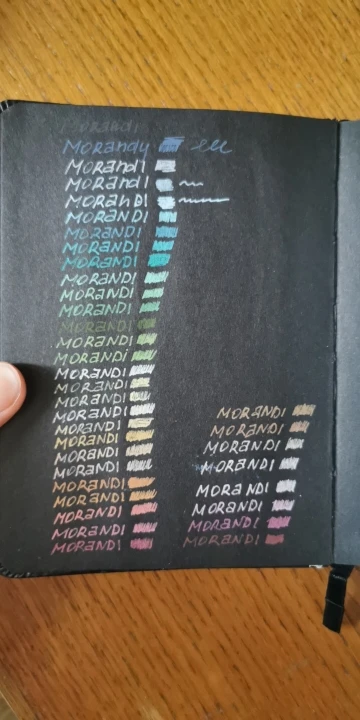 Morandi
MORandy
MORandI
MORandI
MORanDI
MORANDI
MORANDI
MORANDI
MORANDI
MORANDI
MORANDI
MORANDI
MORANDI
MORANDI
MORANDI
MORANDI
MORANDI
MORANDI
MORANDI
MORANDI
MORANDI
MORANDI
MORANDI
MORANDI
MORANDI
MORANDI
MORANDI
MORANDI
MORANDI
MORANDI
MORANDI
MORANDI
MORANDI
MORANDI
MORANDI
MORANDI